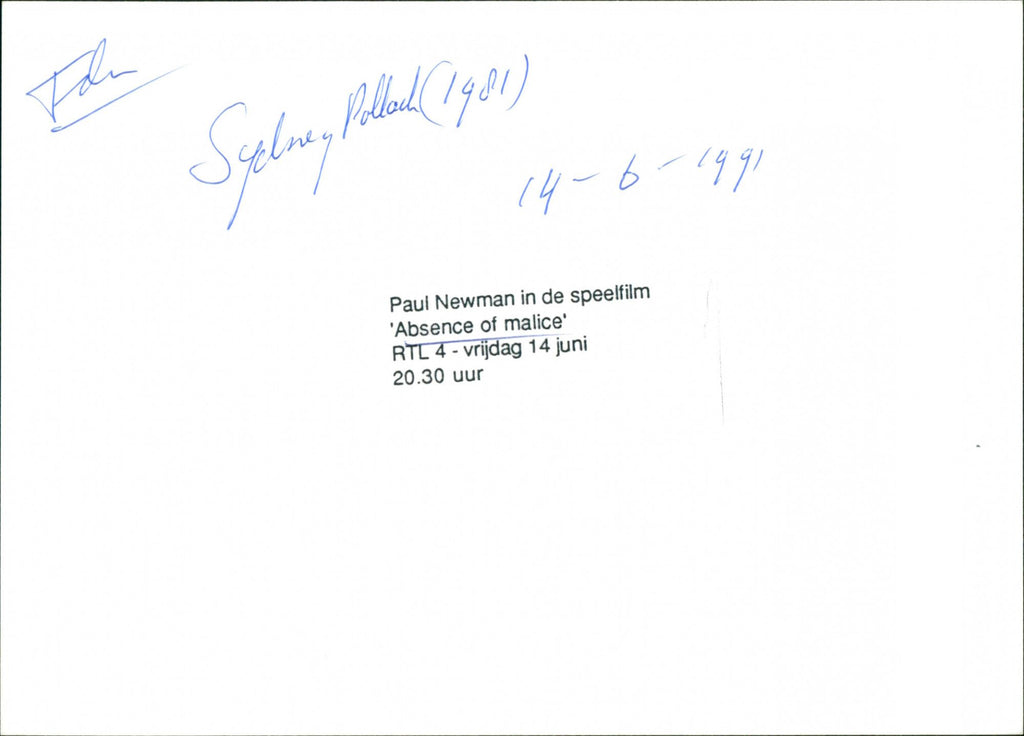 Sydney Pollack (1981)
14 - 6 - 1991
Paul Newman in de speelfilm
'Absence of malice'
RTL 4 - vrijdag 14 juni
20.30 uur